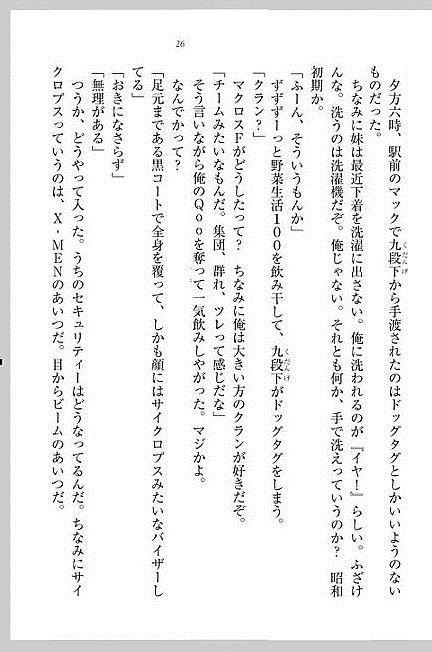 26
夕方六時、駅前のマックで九段下から手渡されたのはドッグタグとしかいいようのない
くだんげ
ものだった。
ちなみに妹は最近下着を洗濯に出さない。俺に洗われるのが『イヤ！』らしい。ふざけ
んな。洗うのは洗濯機だぞ。俺じゃない。それとも何か、手で洗えっていうのか？　昭和
初期か。
「ふーん、そういうもんか」
ずずずーっと野菜生活100を飲み干して、九段下がドッグタグをしまう。
くだんげ
「クラン？」
マクロスFがどうしたって？　ちなみに俺は大きい方のクランが好きだぞ。
「チームみたいなもんだ。集団、群れ、ツレって感じだな」
そう言いながら俺のQooを奪って一気飲みしやがった。マジかよ。
なんでかって？
「足元まである黒コートで全身を覆って、しかも顔にはサイクロプスみたいなバイザーし
てる」
「おきになさらず」
「無理がある」
つうか、どうやって入った。うちのセキュリティーはどうなってるんだ。ちなみにサイ
クロプスっていうのは、X-MENのあいつだ。目からビームのあいつだ。